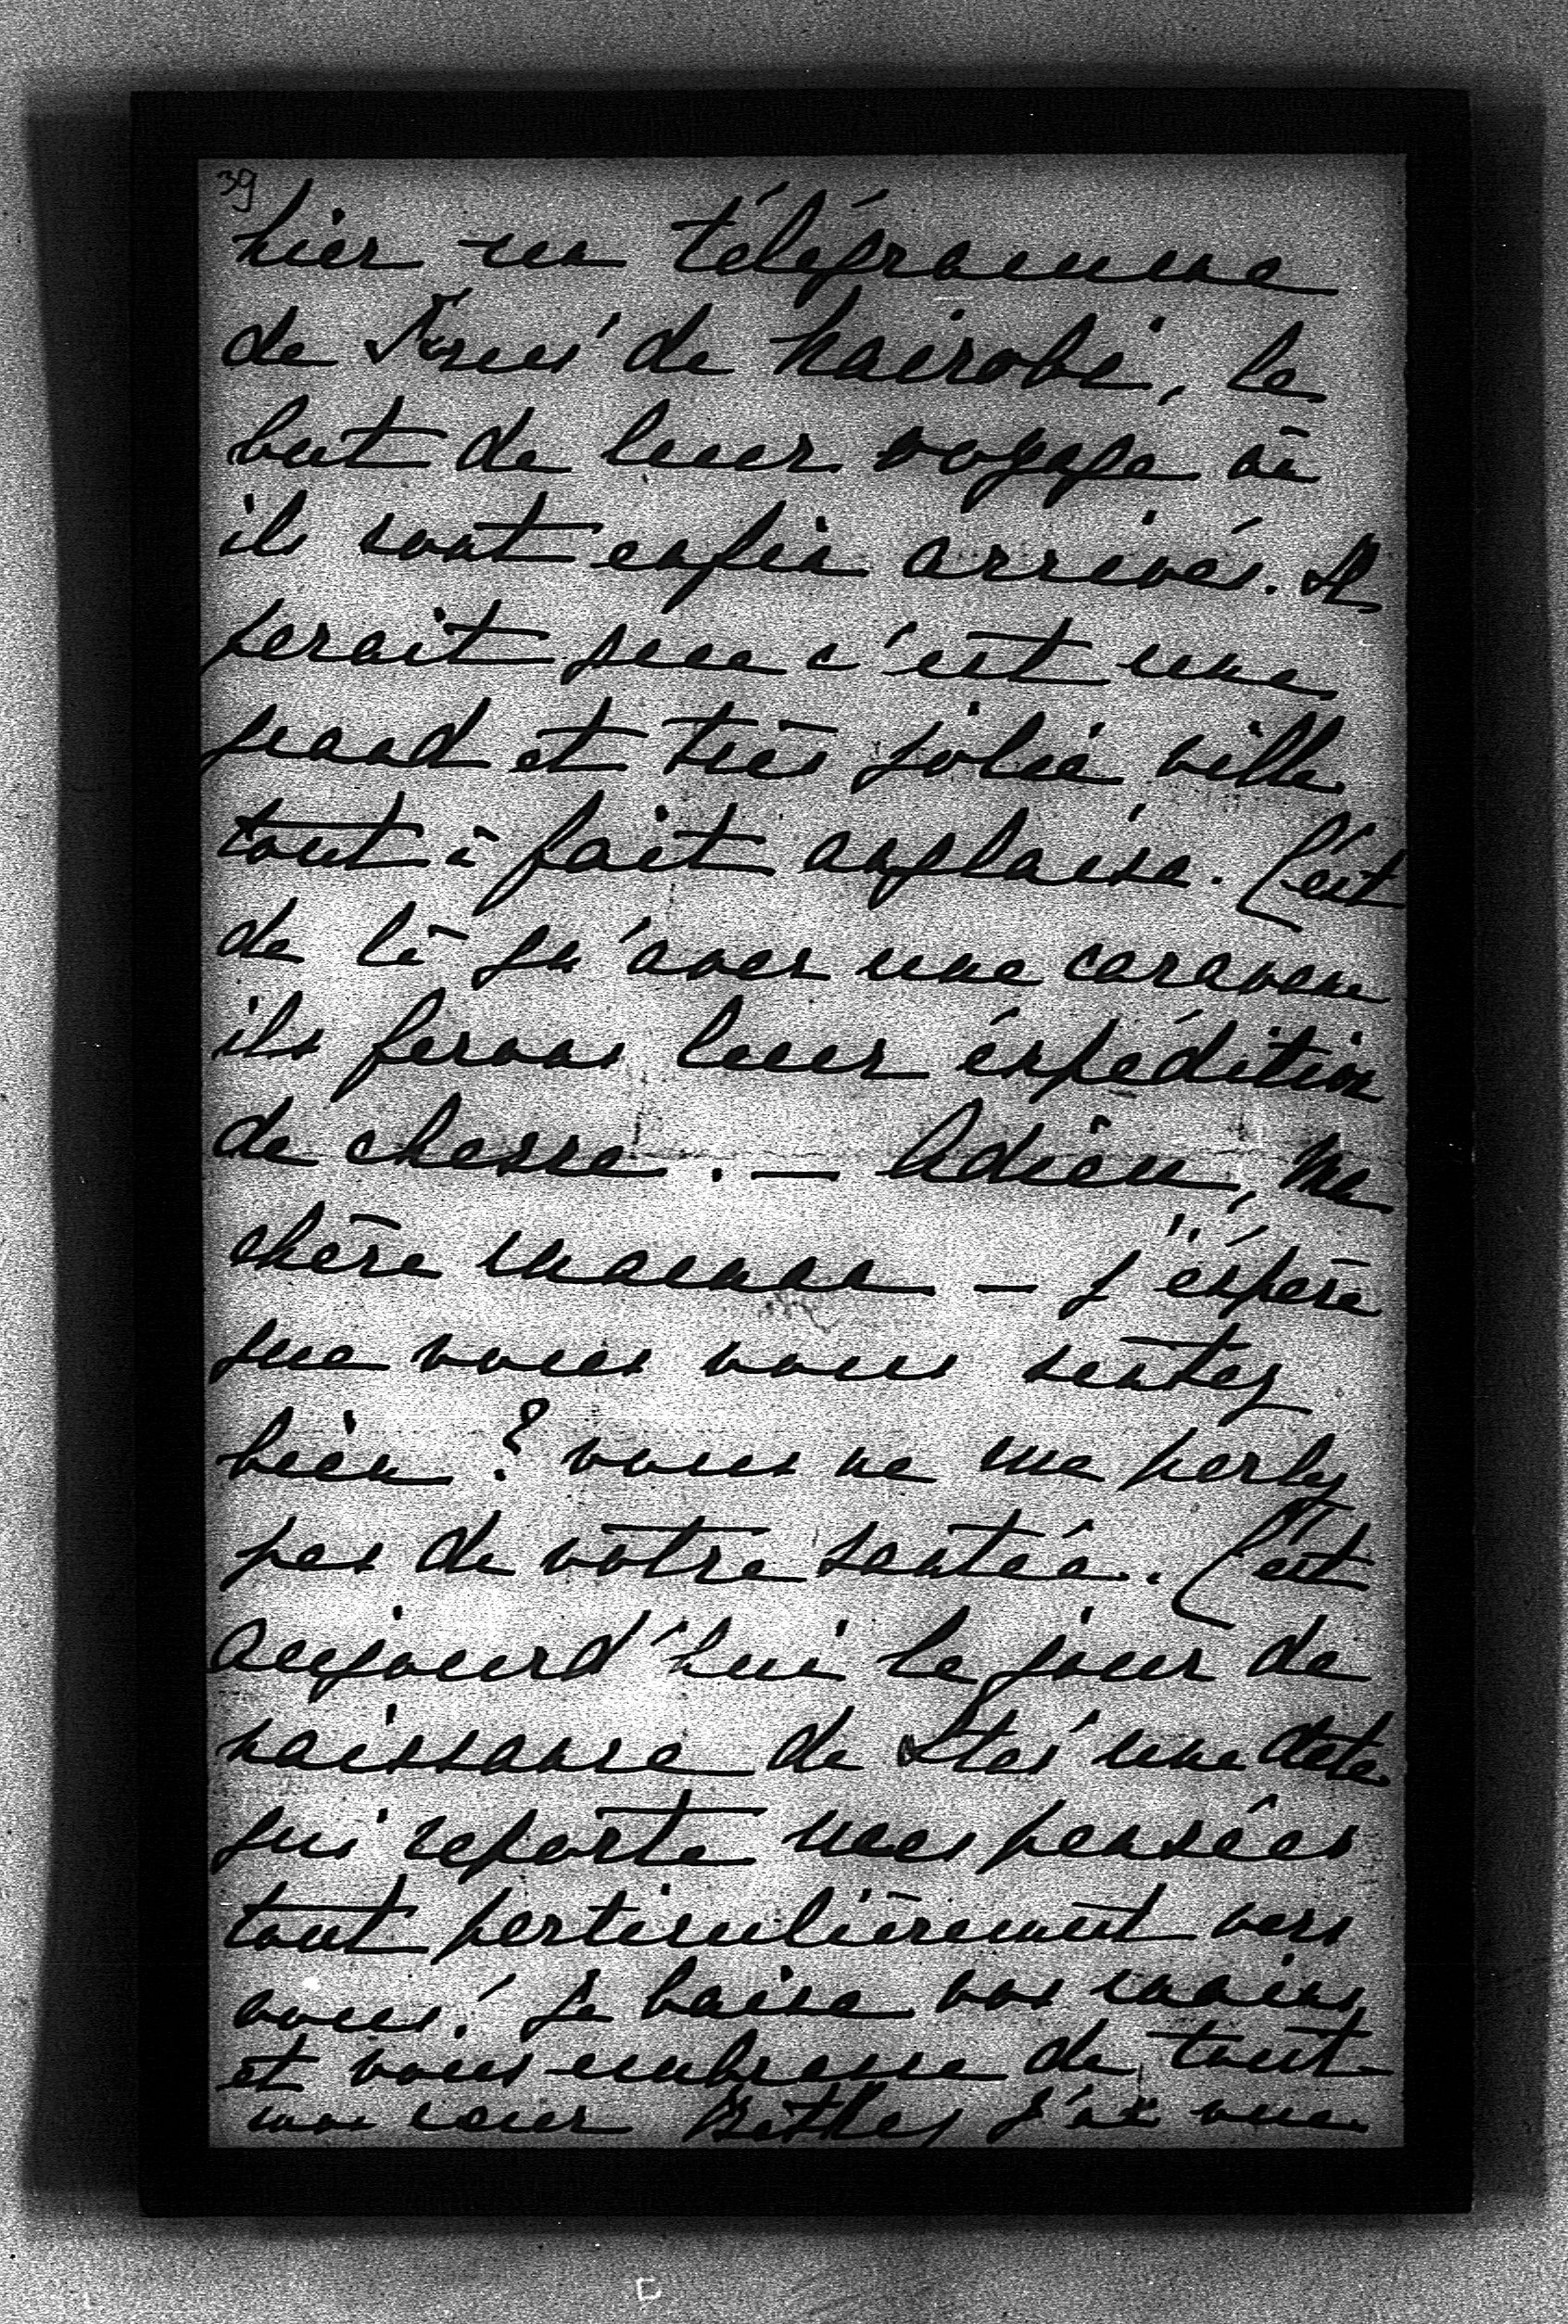 39
hier un télégramme
de de Nairobi, le
but de leur voyage où
ils sont enfin arrivés. Il
parait que c'est une
grand et très jolie ville
tout à fait anglaise. C'est
de là qu'avec une caravane
ils ferons leur éxpédition
de chasse. — Adieu, Ma
chère maman — j'éspère
que vous vous sentez
bien ? vous ne me parlez
pas de votre santée. C'est
aujourd'hui le jour de
naissance de une date
qui reporte mes pensées
tout particulièrement vers
vous! Je baise vos mains
et vous embrasse de tout
mon cœur j'ai vue